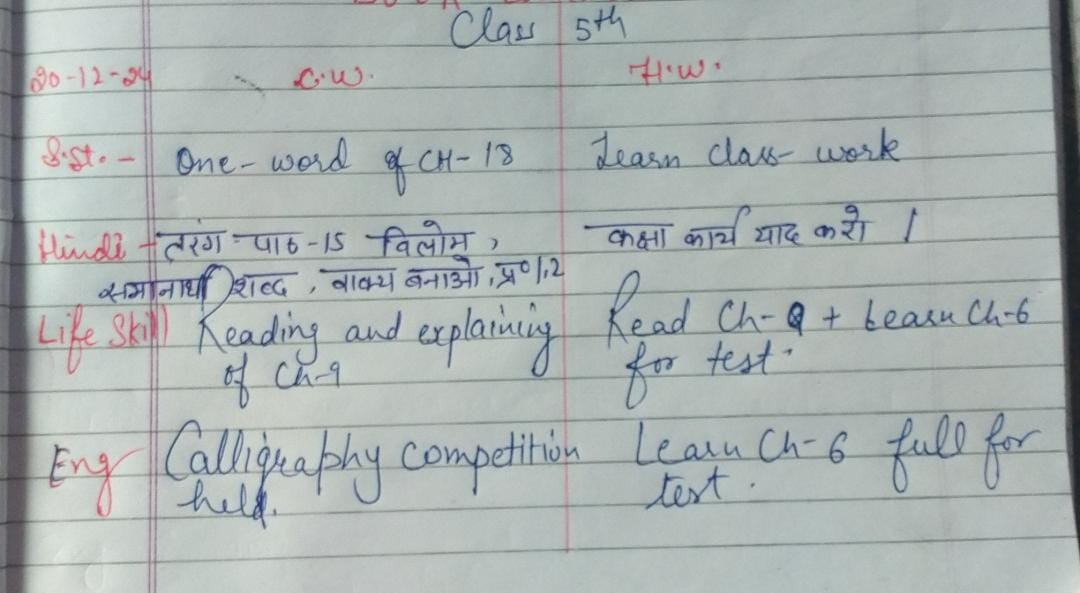 Class 5th
20-12-24 C.W. H.W.
S.St. - One-word of CH-18 Learn class-work
Hindi - तरंग - पाठ-15 विलोम, कक्षा कार्य याद करो ।
समानार्थी शब्द, वाक्य बनाओ, प्र० 1,2
Life Skill Reading and explaining Read Ch-9 + Learn Ch-6
of Ch-9 for test.
Eng Calligraphy competition Learn Ch-6 full for
held. test.